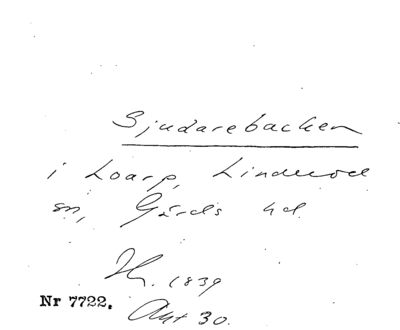 Sjudarebacken
i Loarp, Linderöd
sn, Gärds hd.
1839
Nr 7722. Akt 30.